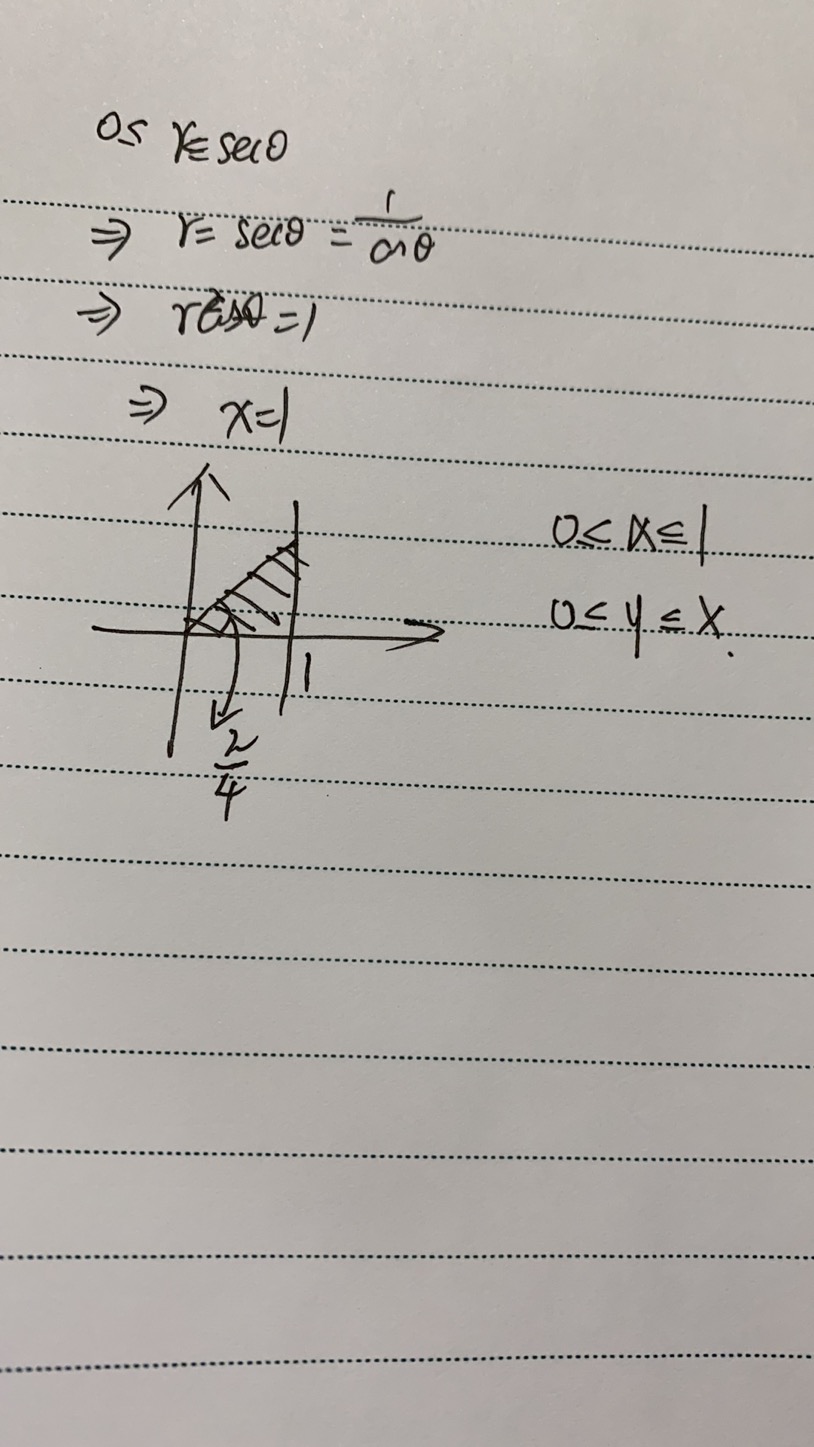 0≤ r≤ secθ
⇒ r= secθ = 1/cosθ
⇒ rcosθ =1
⇒ x=1
0≤ x ≤ 1
0≤ y ≤ x.
1
2/4